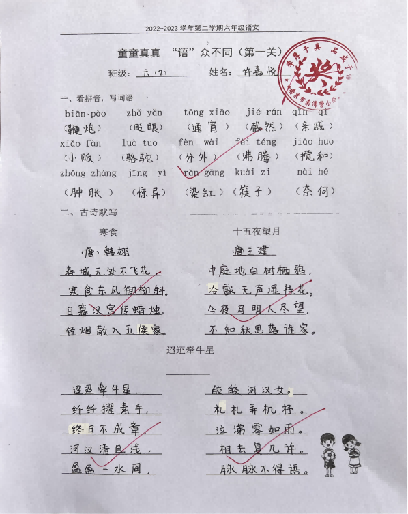 2022-2023学年第二学期六年级语文
童童真真 “语”众不同（第一关）
班级： 姓名：许嘉悦
一、看拼音，写词语
biān pào zhǎ yǎn tōng xiāo jié rán qīn qi
（鞭炮）（眨眼）（通宵）（截然）（亲戚）
xiǎo fàn luò tuo fèn wài fèi téng jiǎo huo
（小贩）（骆驼）（分外）（沸腾）（搅和）
zhǒng zhàng jīng yì rǎn gōng kuài zi nài hé
（肿胀）（惊异）（染缸）（筷子）（奈何）
二、古诗默写
寒食 十五夜望月
（唐）韩翃 唐 王建
春城无处不飞花， 中庭地白树栖鸦，
寒食东风御柳斜。 冷露无声湿桂花。
日暮汉宫传蜡烛， 今夜月明人尽望，
轻烟散入五侯家。 不知秋思落谁家。
迢迢牵牛星
迢迢牵牛星 皎皎河汉女。
纤纤擢素手， 札札弄机杼。
终日不成章， 泣涕零如雨。
河汉清且浅， 相去复几许。
盈盈一水间， 脉脉不得语。